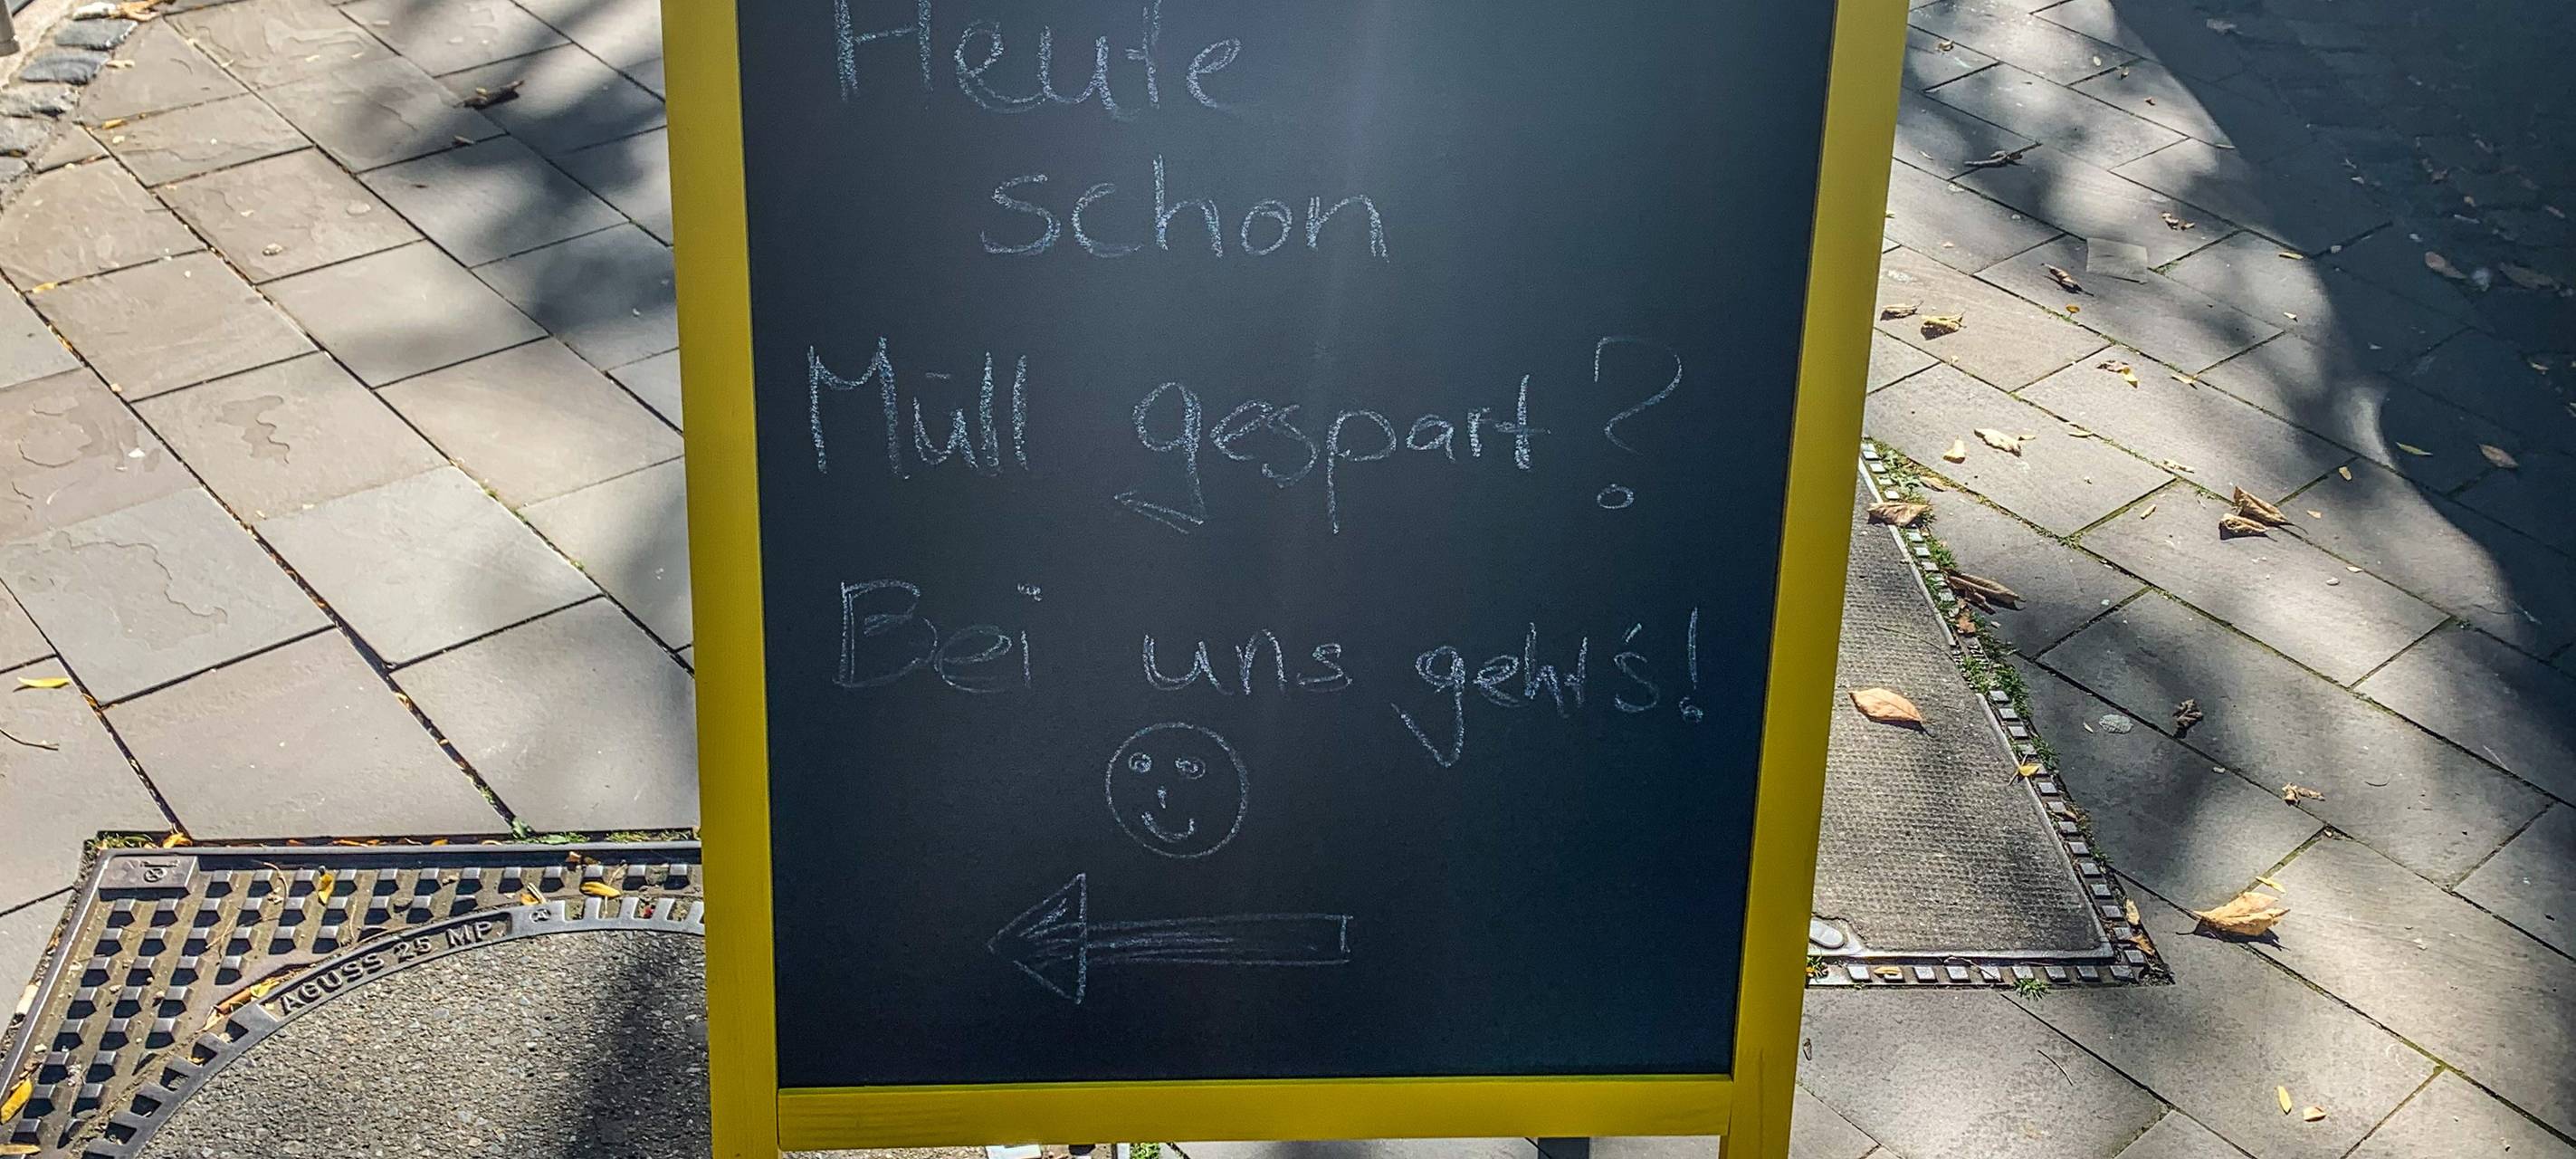 Heute
schon
Müll gespart?
Bei uns geht's!
AGUSS 25 MP